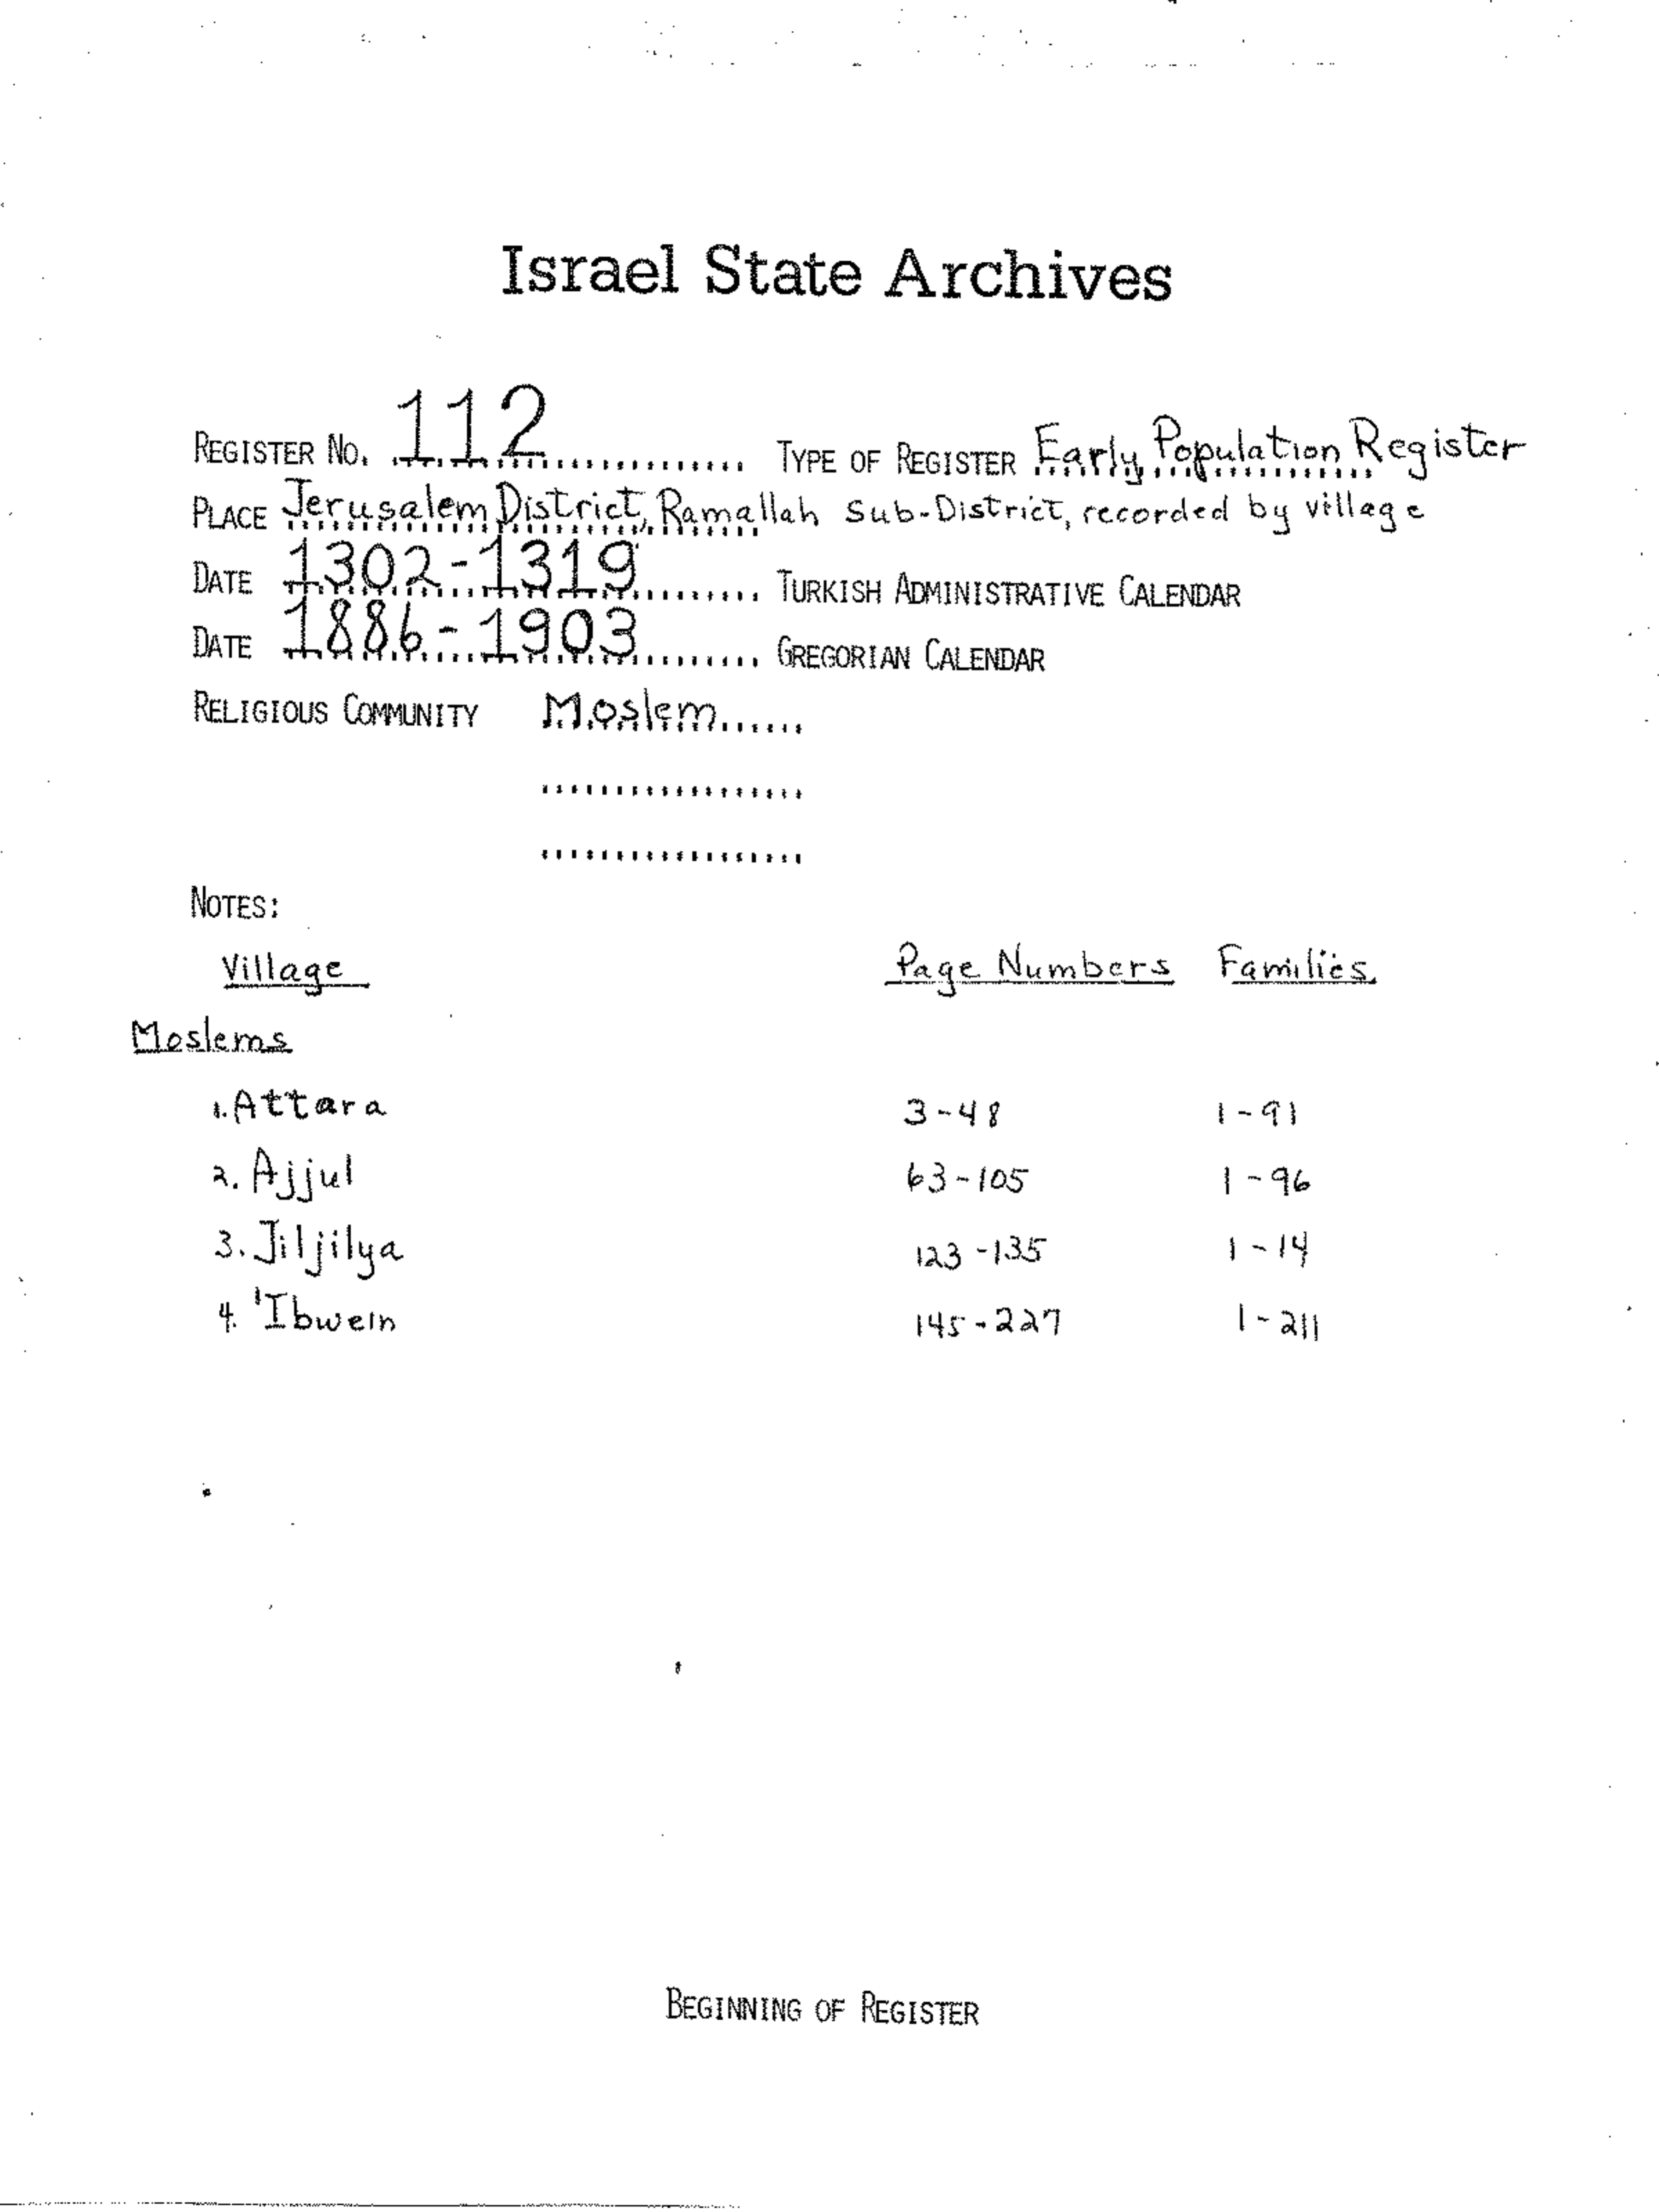 Israel State Archives
REGISTER No. 112 TYPE OF REGISTER Early Population Register
PLACE Jerusalem District, Ramallah Sub-District, recorded by village
DATE 1302-1319 TURKISH ADMINISTRATIVE CALENDAR
DATE 1886-1903 GREGORIAN CALENDAR
RELIGIOUS COMMUNITY Moslem
NOTES:
Village Page Numbers Families
Moslems
1. Attara 3-48 1-91
2. Ajjul 63-105 1-96
3. Jiljilya 123-135 1-14
4. 'Ibwein 145-227 1-211
BEGINNING OF REGISTER